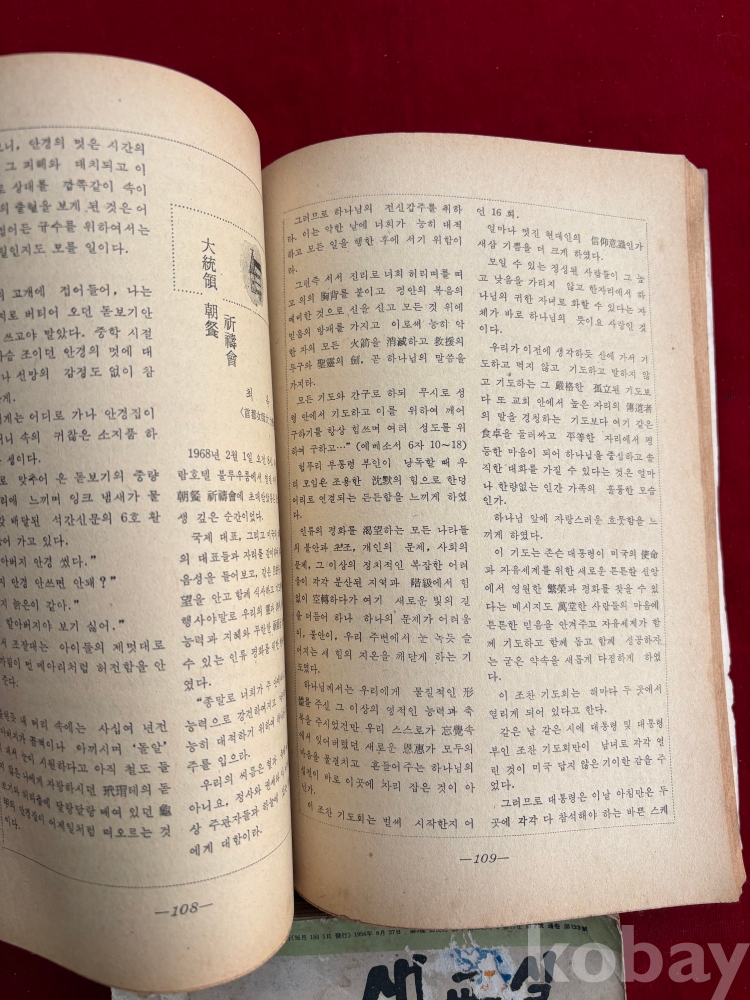 보니, 안경의 멋은 시간의
그 지혜와 대치되고 이
로 상대를 깜쪽같이 속이
의 출혈을 보게 된 것은 어
접어든 균수를 위하여서는
일인지도 모를 일이다.
의 고개에 접어들어, 나는
으로 버티어 오던 돋보기안
쓰고야 말았다. 중학 시절
가슴 조이던 안경의 멋에 대
나 선망의 감정도 없이 참
게는 어디로 가나 안경집이
머니 속의 귀찮은 소지품 하
생이다.
로 맞추어 온 돋보기의 중량
리에 느끼며 잉크 냄새가 물
배달된 석간신문의 6호 활
어 가고 있다.
아버지 안경 썼다.”
안경 안쓰면 안돼?”
늙은이 같아.”
할아버지야 보기 싫어.”
조잘대는 아이들의 제멋대로
메아리처럼 허전함을 안
준다.
내 머리 속에는 사십여 년전
아끼시며 ‘돌알’
대서 눈이 시원하다고 아직 철도 들
않은 나에게 자랑하시던 玳瑁테의 돋
달랑달랑 매여 있던
안경집이 어제일처럼 떠오르는 것
이다.
—108—
大統領 朝餐 祈禱會
최
1968년 2월 1일 오전
람호텔 볼루우룸에서
朝餐 祈禱會에 초대
생 깊은 순간이었다.
국제 대표, 그리고
의 대표들과 자리를 같이
음성을 들어보고, 같은
望을 안고 함께 식사하고
행사야말로 우리의
능력과 지혜와 무한한
수 있는 인류 평화를 위한
였다.
“종말로 너희가 주 안에서
능력으로 강건하여지고
능히 대적하기 위하여
주를 입으라.
우리의 씨름은 혈과
아니요, 정사와 권세와
상 주관자들과 하늘에
에게 대함이라.
그러므로 하나님의 전신갑주를 취하
라. 이는 악한 날에 너희가 능히 대적
하고 모든 일을 행한 후에 서기 위함이
라.
그런즉 서서 진리로 너희 허리띠를 띠
고 의의 胸背를 붙이고 평안의 복음의
예비한 것으로 신을 신고 모든 것 위에
믿음의 방패를 가지고 이로써 능히 악
한 자의 모든 火箭을 消滅하고 救援의
투구와 聖靈의 劍, 곧 하나님의 말씀을
가지라.
모든 기도와 간구로 하되 무시로 성
령 안에서 기도하고 이를 위하여 깨어
구하기를 항상 힘쓰며 여러 성도를 위
하여 구하고…” (에베소서 6자 10~18)
험푸리 부통령 부인이 낭독할 때 우
리 모임은 조용한 沈默의 힘으로 한덩
어리로 연결되는 든든함을 느끼게 하였
다.
인류의 평화를 渴望하는 모든 나라들
의 불안과 초조, 개인의 문제, 사회의
문제, 그 이상의 정치적인 복잡한 어려
움이 각각 분산된 지역과 階級에서 힘
없이 空轉하다가 여기 새로운 빛의 길
을 더듬어 하나 하나의 문제가 어려움
이, 불안이, 우리 주변에서 눈 녹듯 슬
어지는 새 힘의 지온을 깨닫게 하는 기
도였다.
하나님께서는 우리에게 물질적인 形
體을 주신 그 이상의 영적인 능력과 축
복을 주시었건만 우리 스스로가 忘覺속
에서 잊어버렸던 새로운 恩惠가 모두의
마음을 물결치고 흔들어주는 하나님의
설정이 바로 이곳에 차리 잡은 것이 아
닌가.
이 조찬 기도회는 벌써 시작한지 어
언 16 회.
얼마나 멋진 현대인의 信仰意識인가
새삼 기쁨을 더 크게 하였다.
모일 수 있는 정성된 사람들이 그 높
고 낮음을 가리지 않고 한자리에서 하
나님의 귀한 자녀로 화할 수 있다는 자
체가 바로 하나님의 뜻이요 사랑인 것
이다.
우리가 이전에 생각하듯 산에 가서 기
도하고 먹지 않고 기도하고 말하지 않
고 기도하는 그 嚴格한 孤立된 기도보
다 또 교회 안에서 높은 자리의 傳道者
의 말을 경청하는 기도보다 여기 같은
食卓을 둘러싸고 平等한 자리에서 평
등한 마음이 되어 하나님을 중심하고 솔
직한 대화를 가질 수 있다는 것은 얼마
나 한량없는 인간 가족의 훌륭한 모습
인가.
하나님 앞에 자랑스러운 흐뭇함을 느
끼게 하였다.
이 기도는 존슨 대통령이 미국의 使命
과 자유세계를 위한 새로운 튼튼한 신앙
에서 영원한 繁榮과 평화를 찾을 수 있
다는 메시지도 萬堂한 사람들의 마음에
튼튼한 믿음을 안겨주고 자유세계가 함
께 기도하고 함께 돕고 함께 성공하자
는 굳은 약속을 새롭게 다짐하게 하였
다.
이 조찬 기도회는 해마다 두 곳에서
열리게 되어 있다고 한다.
같은 날 같은 시에 대통령 및 대통령
부인 조찬 기도회만이 남녀로 각각 연
린 것이 미국 답지 않은 기이한 감을 주
었다.
그러므로 대통령은 이날 아침만은 두
곳에 각각 다 참석해야 하는 바쁜 스케
—109—
새벗설
kobay